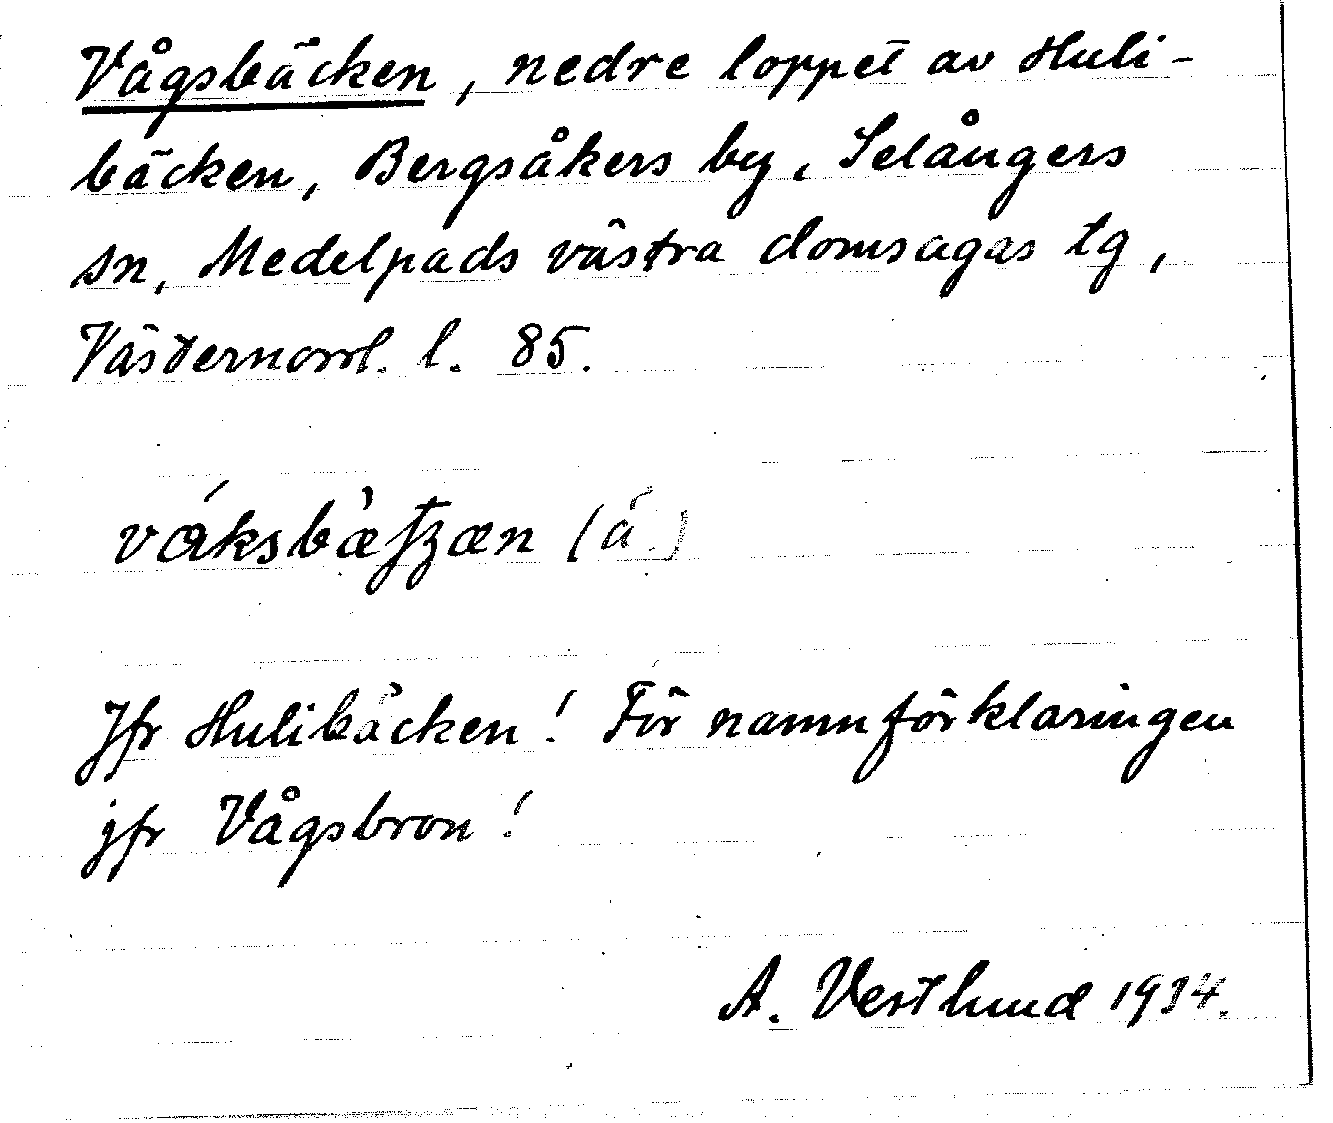 Vågsbäcken, nedre loppet av Huli-
bäcken, Bergsåkers by, Selångers
sn, Medelpads västra domsagas tg,
Västernorrl. l. 85.
(ä)
Jfr Hulibäcken! För namnförklaringen
jfr Vågsbron!
A. Vestlund 1934.